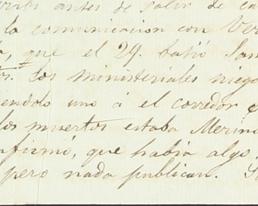 antes de salir de ca
la comunicacion con Ver
a, que el 29. batió San
los. Los ministeriales nega
endolo uno á el corredor
los muertos estaba Merin
nfirmó, que habia algo.
pero nada publican. S